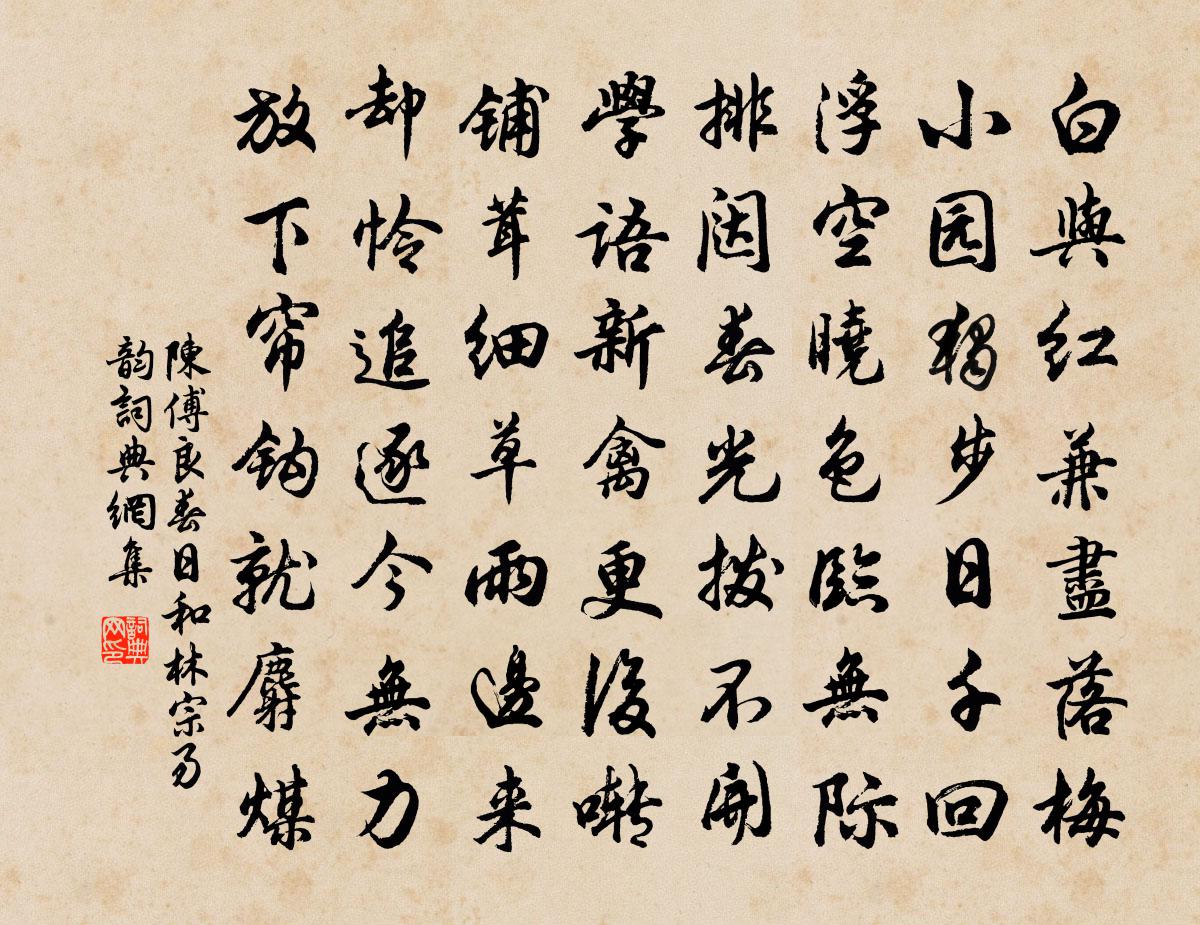 白與红兼盡落梅
小园獨步日千回
浮空曉色臨無际
排闼春光拨不開
學語新禽更復啭
铺茸细草雨邊来
却怜追逐今無力
放下帘钩就麝煤
陳傅良春日和林宗易
韵詞典網集
詞典网印